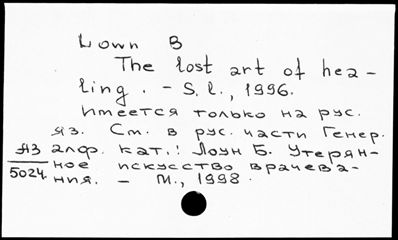 Lown B
The lost art of hea-
ling. - S. l., 1996.
Имеется только на рус.
яз. См. в рус. части Генер.
ЯЗ алф. кат.: Лоун Б. Утерян-
5024 ное искусство врачева-
ния. - М., 1998.